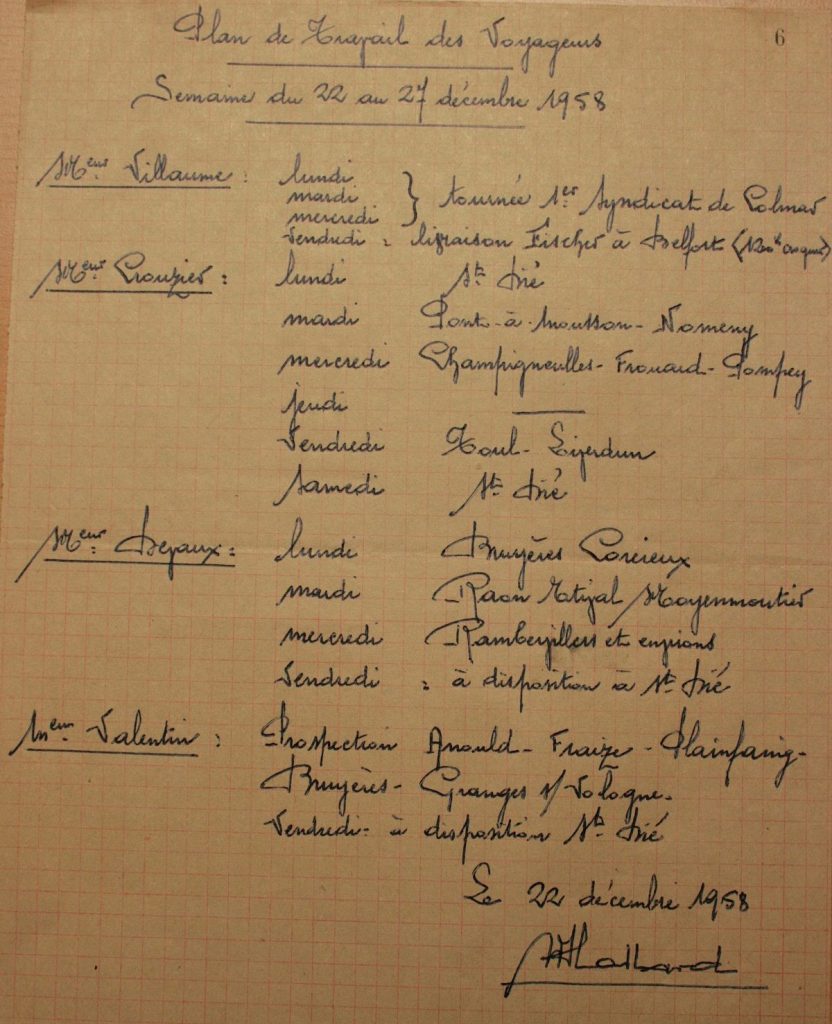 6
Plan de Travail des Voyageurs
Semaine du 22 au 27 décembre 1958
Meur Villaume : lundi
mardi
mercredi } tournée 1er Syndicat de Colmar
Vendredi = livraison Fischer à Belfort
Meur Crouzier : lundi St Dié
mardi Pont-à-Mousson - Nomeny
mercredi Champigneulles - Frouard - Pompey
jeudi —
Vendredi Toul - Liverdun
Samedi St Dié
Meur Dejaux = lundi Bruyères Corcieux
mardi Raon Etival Moyenmoutier
mercredi Rambervillers et environs
Vendredi = à disposition à St Dié
Meur Valentin : Prospection Anould - Fraize - Plainfaing -
Bruyères - Granges s/ Vologne -
Vendredi = à disposition St Dié
Le 22 décembre 1958